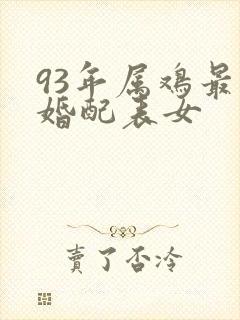 93年属鸡最
婚配表女
賣了否冷